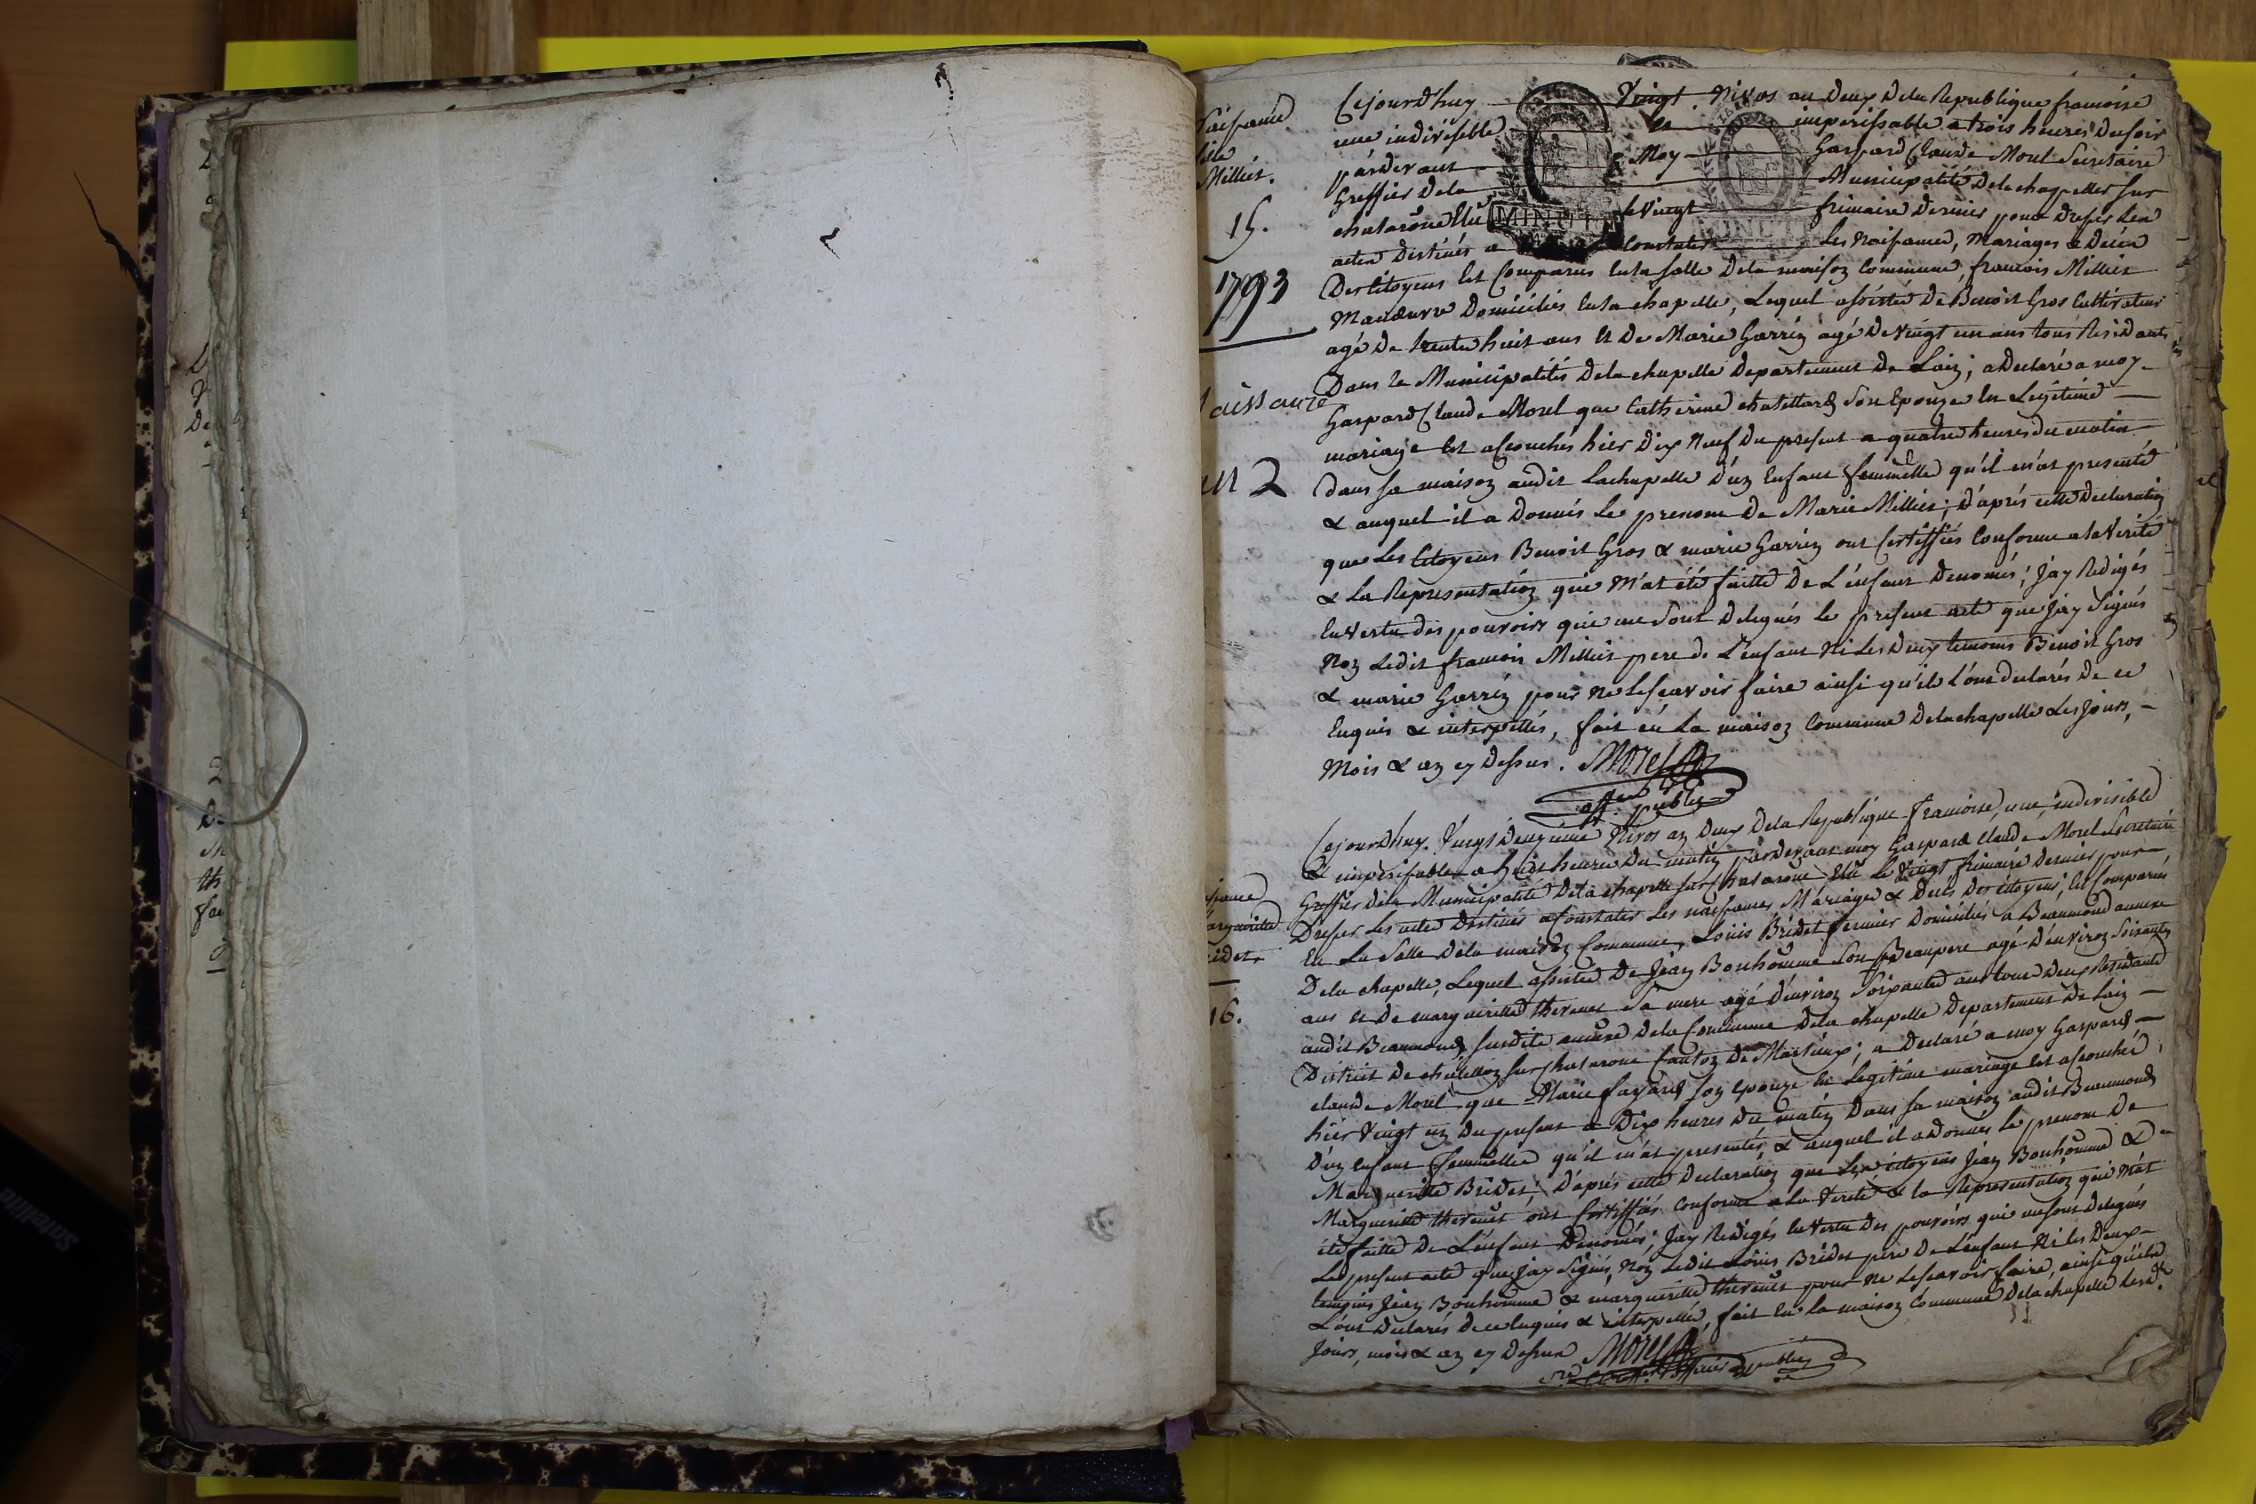 Naissance
Millier.
15.
1793
aissance
an 2
Cejourd'huy Vingt Nivos an Deux Dela Republique francoise
une indivisible et imperissable a trois heures Du soir
pardevant Moy Gaspard Claude Morel Secretaire
Greffier Dela Municipalité Delachapelle sur
chalarone Elu le Vingt frimaire Dernier pour Dresser les
actes Destinés a Constater Les Naissances, Mariages & Décés
Des Citoyens Est Comparus En la Salle Dela maison Commune, francois Millier
Manœuvre Domiciliés En la chapelle, Lequel assistée De Benoit Gros Cultivateur
agé De trente huit ans Et De Marie Garrin agé De Vingt un ans tous Residants
Dans la Municipalités Dela chapelle Departement De Lain; a Declaré a moy
Gaspard Claude Morel que Catherine chatillard Son Epouze En Legitime
mariage Est acouchés hier Dix Neuf Du present a quatre heures du matin
Dans sa maison audit Lachapelle D'un Enfant femmelle qu'il m'at presenté
& auquel il a Donnés Le prenom De Marie Millier; D'aprés cette Declaration
que Les Citoyens Benoit Gros & marie Garrin ont Certiffiés Conforme a la Verité
& La Representation qui M'at été faitte De L'enfant Denomés; Jay Redigés
En Vertu des pouvoirs qui me Sont Delegués le present acte que Jay Signés
Non Ledit francois Millier pere de L'enfant Ni Les Deux temoins Benoit Gros
& marie Garrin pour Ne Le scavoir faire ainsi qu'ils L'ont declarés De ce
Enquis & interpellés, fait en La maison Commune Delachapelle Les Jours,
Mois & an cy Dessus. Morel
off. public
arguerite
ridet
16.
Cejourd'huy Vingt deuxiéme Nivos an Deux Dela Republique francoise, une indivisible
& imperissable a huit heures Du matin pardevant moy Gaspard Claude Morel Secretaire
Greffier Dela Municipalité Dela chapelle sur chalarone Elu Le Vingt frimaire Dernier pour
Dresser Les actes Destinés a Constater Les naissances Mariages & Decés Des citoyens; Est Comparus
En La Salle Dela maison Commune, Loüis Bridet fermier Domiciliés a Beaumond annexe
Dela chapelle, Lequel assistée De Jean Bonhomme Son Beaupere agé D'environ Soixante
ans Et De marguerite thevenet Sa mere agé D'environ Soixante ans tous Deux Residants
audit Beaumond, Susdite annexe Dela Commune Dela chapelle Departement De Lain
District De chatillon sur chalarone Canton De Marlieux; a Declaré a moy Gaspard
claude Morel que Marie fayard son epouze En Legitime mariage Est acouchée
hier Vingt un Du present a Dix heures Du matin Dans sa maison audit Beaumond
D'un Enfant femmelle qu'il m'at presentés, & auquel il a Donnés Le prenom De
Marguerite Bridet; D'aprés cette Declaration que Les citoyens Jean Bonhomme &
Marguerite thevenet ont Certiffiés Conforme a La Verité & La Representation qui M'at
été faitte De L'enfant Denomés; Jay Redigés En Vertu Des pouvoirs qui me Sont Delegués
Le present acte que Jay Signés, Non Ledit Loüis Bridet pere De L'enfant Ni les Deux
temoins Jean Bonhomme & marguerite thevenet pour Ne Le scavoir faire, ainsi qu'ils
L'ont Declarés De ce Enquis & interpellés, fait En La maison Commune Dela chapelle Lesdt
Jours, mois & an cy Dessus Morel